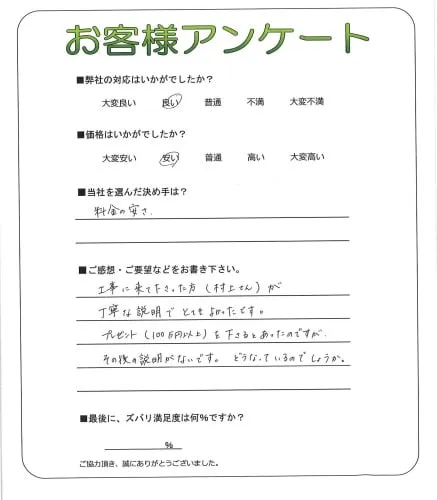 お客様アンケート
■弊社の対応はいかがでしたか？
大変良い 良い 普通 不満 大変不満
■価格はいかがでしたか？
大変安い 安い 普通 高い 大変高い
■当社を選んだ決め手は？
料金の安さ.
■ご感想・ご要望などをお書き下さい。
工事に来て下さった方(村上さん)が
丁寧な説明でとてもよかったです。
プレゼント(100万円以上)を下さるとあったのですが、
その後の説明がないです。どうなっているのでしょうか。
■最後に、ズバリ満足度は何%ですか？
%
ご協力頂き、誠にありがとうございました。